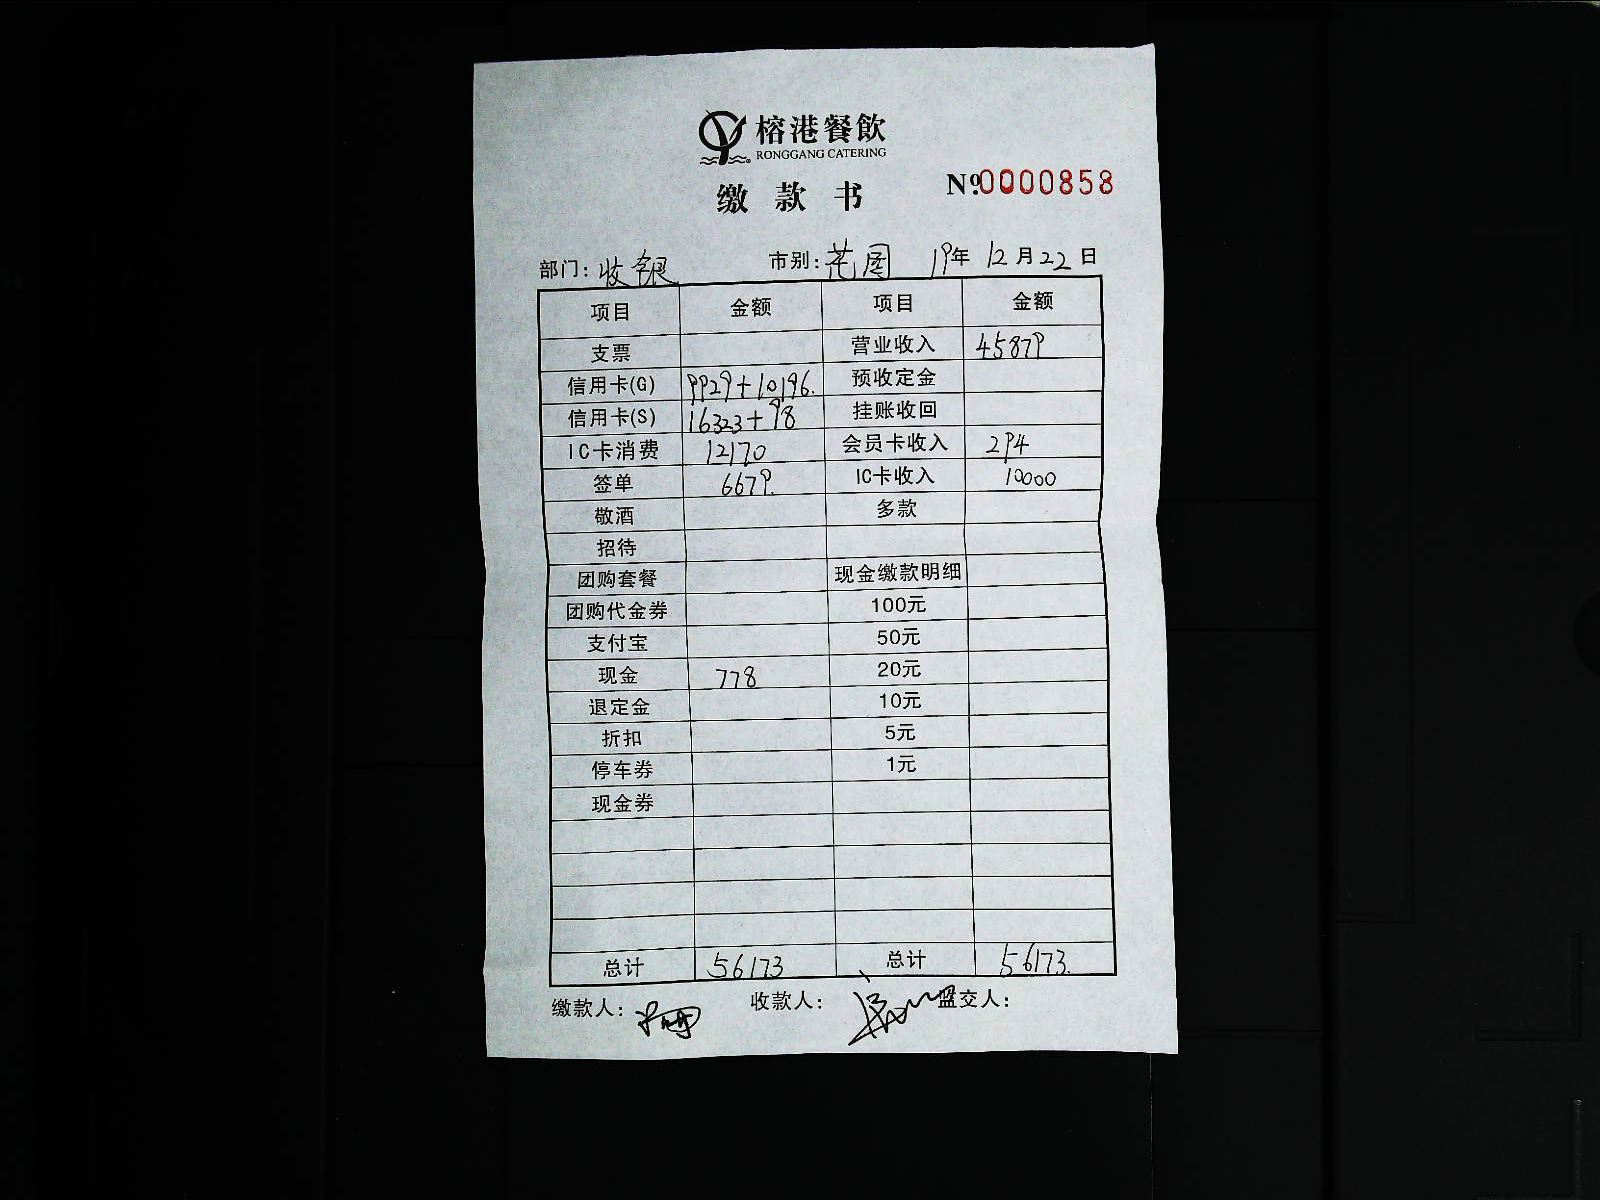 榕港餐飲
RONGGANG CATERING
缴款书 №0000858
部门：收银 市别：花园 19年12月22日
项目 金额 项目 金额
支票 营业收入 45879
信用卡(G) 9929+10196. 预收定金
信用卡(S) 16323+98 挂账收回
IC卡消费 12170 会员卡收入 294
签单 6679. IC卡收入 10000
敬酒 多款
招待
团购套餐 现金缴款明细
团购代金券 100元
支付宝 50元
现金 778 20元
退定金 10元
折扣 5元
停车券 1元
现金券
总计 56173 总计 56173.
缴款人： 收款人： 监交人：